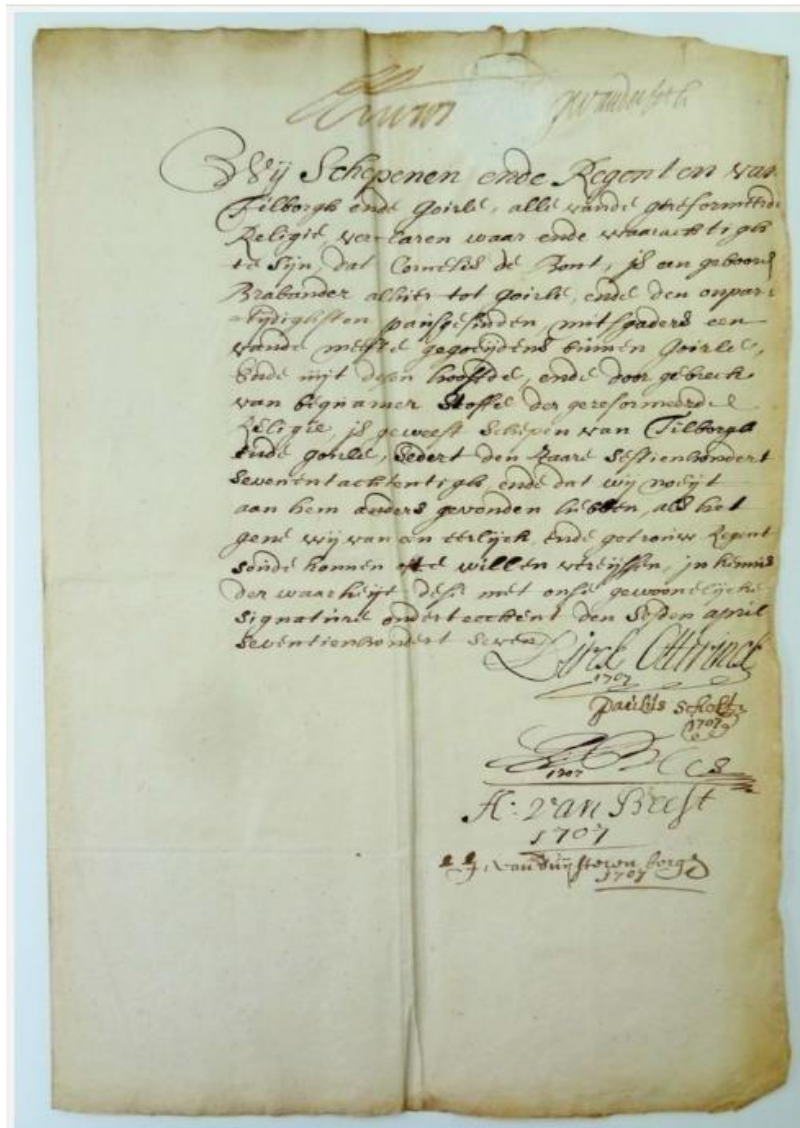 Wij Schepenen ende Regenten van
Tilborgh ende Goirle, alle vande gereformeerde
Religie, verclaren waar ende waarachtigh
te sijn, dat Cornelis de Bont, js een geboore
Brabander alhier tot Goirle, ende den onpar-
tijdighsten pausgesinden, mitsgaders een
vande meeste gegoeijdens binnen Goirle,
Ende uijt desen hooffde, ende door gebreck
van bequamer Stoffe der gereformeerde
Religie, js geweest Schepen van Tilborgh
ende Goirle, Sedert den Jaare Sestienhondert
Sevenentachtentigh ende dat wij noeijt
aan hem anders gevonden hebben, als het
gene wij van een eerlijck ende getrouw Regent
Soude konnen ofte willen vereijssen, jn kennis
der waarheijt dese met onse gewoonelijcke
Signature onderteeckent den Sesden april
Seventienhondert Seven
Dirck
1707
Paulus Scholt
1707
1707
A: van Beest
1707
van Suijsterenborg
1707